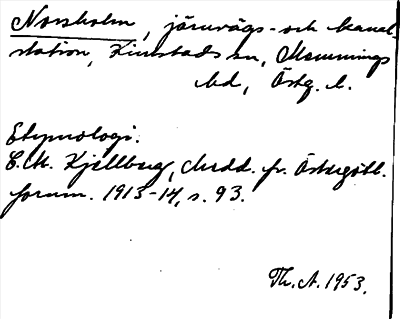 Norsholm, järnvägs- och kanal-
station, Kimstads sn, Memmings
hd, Östg. l.
Etymologi.
C. M. Kjellberg, Medd. fr. Östergötl.
fornm. 1913-14, s. 93.
Th. A. 1953.